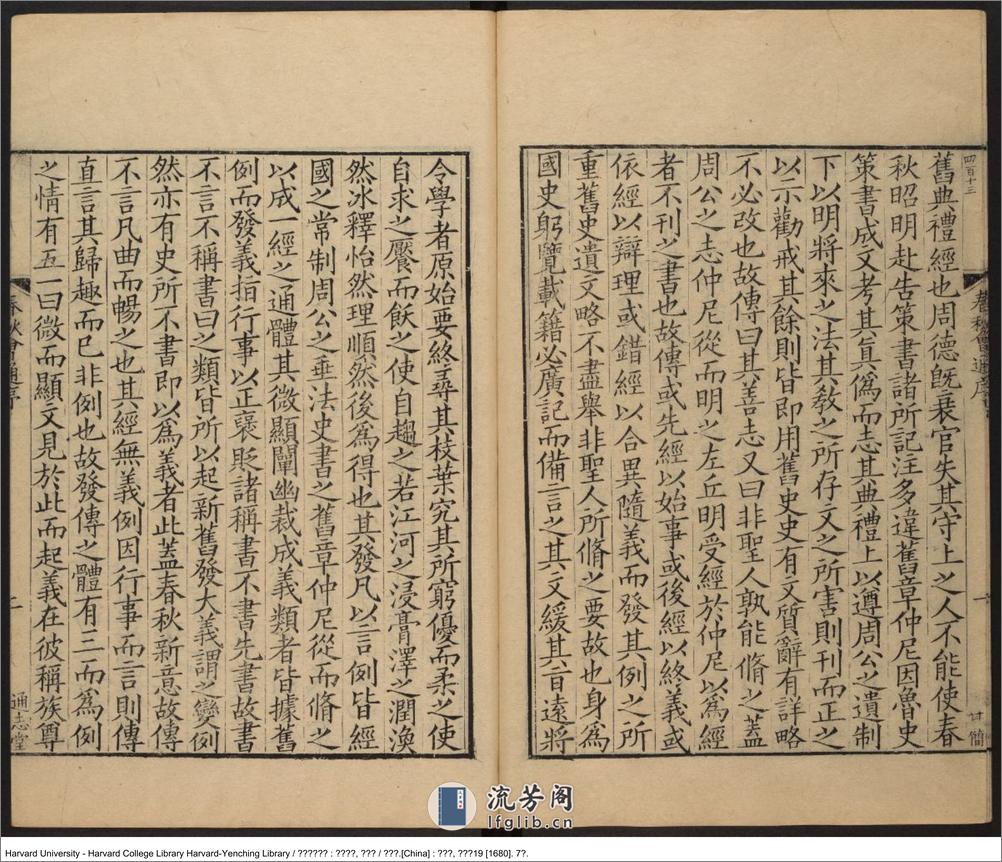 四百十三
舊典禮經也周德旣衰官失其守上之人不能使春
秋昭明赴告策書諸所記注多違舊章仲尼因魯史
策書成文考其眞僞而志其典禮上以遵周公之遺制
下以明將來之法其敎之所存文之所害則刊而正之
以示勸戒其餘則皆即用舊史史有文質辭有詳略
不必改也故傳曰其善志又曰非聖人孰能脩之蓋
周公之志仲尼從而明之左丘明受經於仲尼以爲經
者不刊之書也故傳或先經以始事或後經以終義或
依經以辯理或錯經以合異隨義而發其例之所
重舊史遺文略不盡舉非聖人所脩之要故也身爲
國史躬覽載籍必廣記而備言之其文緩其旨遠將
令學者原始要終尋其枝葉究其所窮優而柔之使
自求之饜而飫之使自趨之若江河之浸膏澤之潤渙
然冰釋怡然理順然後爲得也其發凡以言例皆經
國之常制周公之垂法史書之舊章仲尼從而脩之
以成一經之通體其微顯闡幽裁成義類者皆據舊
例而發義指行事以正襃貶諸稱書不書先書故書
不言不稱書曰之類皆所以起新舊發大義謂之變例
然亦有史所不書即以爲義者此蓋春秋新意故傳
不言凡曲而暢之也其經無義例因行事而言則傳
直言其歸趣而已非例也故發傳之體有三而爲例
之情有五一曰微而顯文見於此而起義在彼稱族尊
春秋會通序
二
通志堂
流芳阁
lfglib.cn
Harvard University - Harvard College Library Harvard-Yenching Library / ?????? : ????, ??? / ???.[China] : ???, ???19 [1680]. 7?.